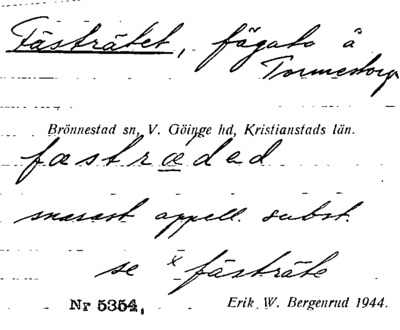 Fästrätet, fägata å
Tormestorp
Brönnestad sn, V. Göinge hd, Kristianstads län.
fæstrædəd
snarast appell. subst.
se x fästräte
Nr 5354. Erik W. Bergenrud 1944.